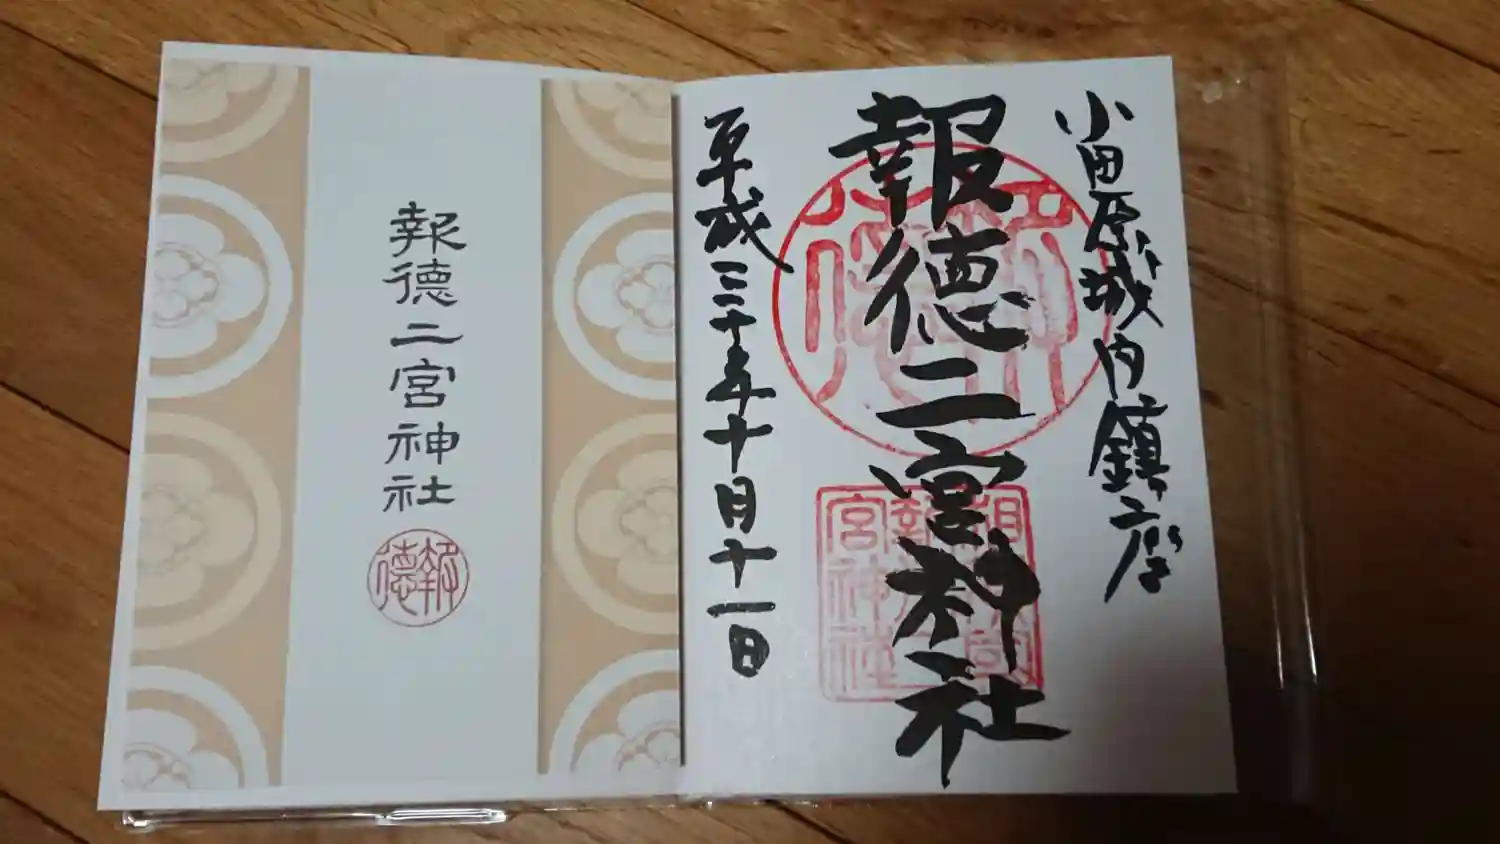 小田原城内鎮座
報徳二宮神社
報徳
平成三十年十月十一日
報徳二宮神社
報徳